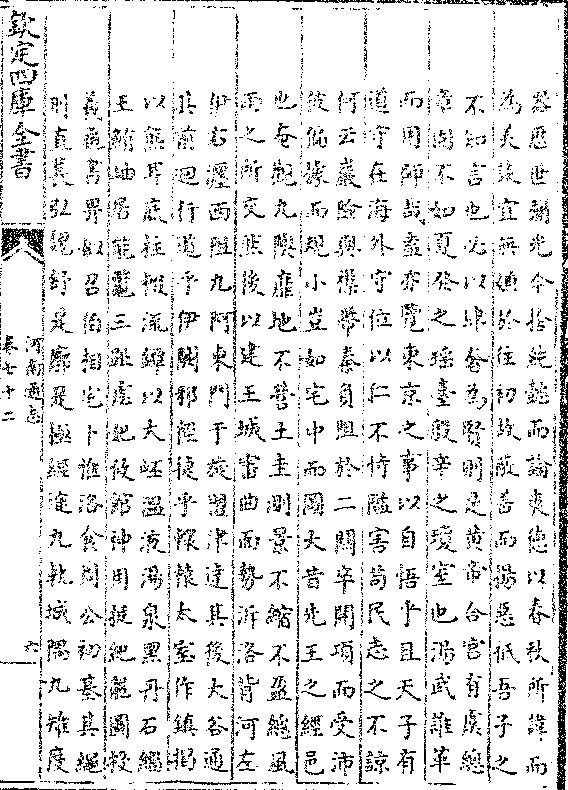 欽定四庫全書
河南通志
卷七十二
六
器歷世彌光今捨純懿而論爽德以春秋所諱而
為美談宜無嫌於往初故蔽善而揚惡祗吾子之
不知言也必以肆奢為賢則是黃帝合宮有虞總
章固不如夏癸之瑤臺殷辛之瓊室也湯武誰革
而用師哉盍亦覽東京之事以自悟乎且天子有
道守在海外守位以仁不恃隘害苟民志之不諒
何云巖險與襟帶秦負阻於二關卒開項而受沛
彼偏據而規小豈如宅中而圖大昔先王之經邑
也奄觀九隩靡地不營土圭測景不縮不盈總風
雨之所交然後以建王城審曲面勢泝洛背河左
伊右瀍西阻九阿東門于旋盟津達其後大谷通
其前迴行道乎伊闕邪徑捷乎轘轅太室作鎮揭
以熊耳底柱輟流鐔以大岯溫液湯泉黑丹石緇
王鮪岫居能鼈三趾虙妃攸館神用挺紀龍圖授
羲龜書畀姒召伯相宅卜惟洛食周公初基其繩
則直萇弘魏舒是廓是極經途九軌城隅九雉度